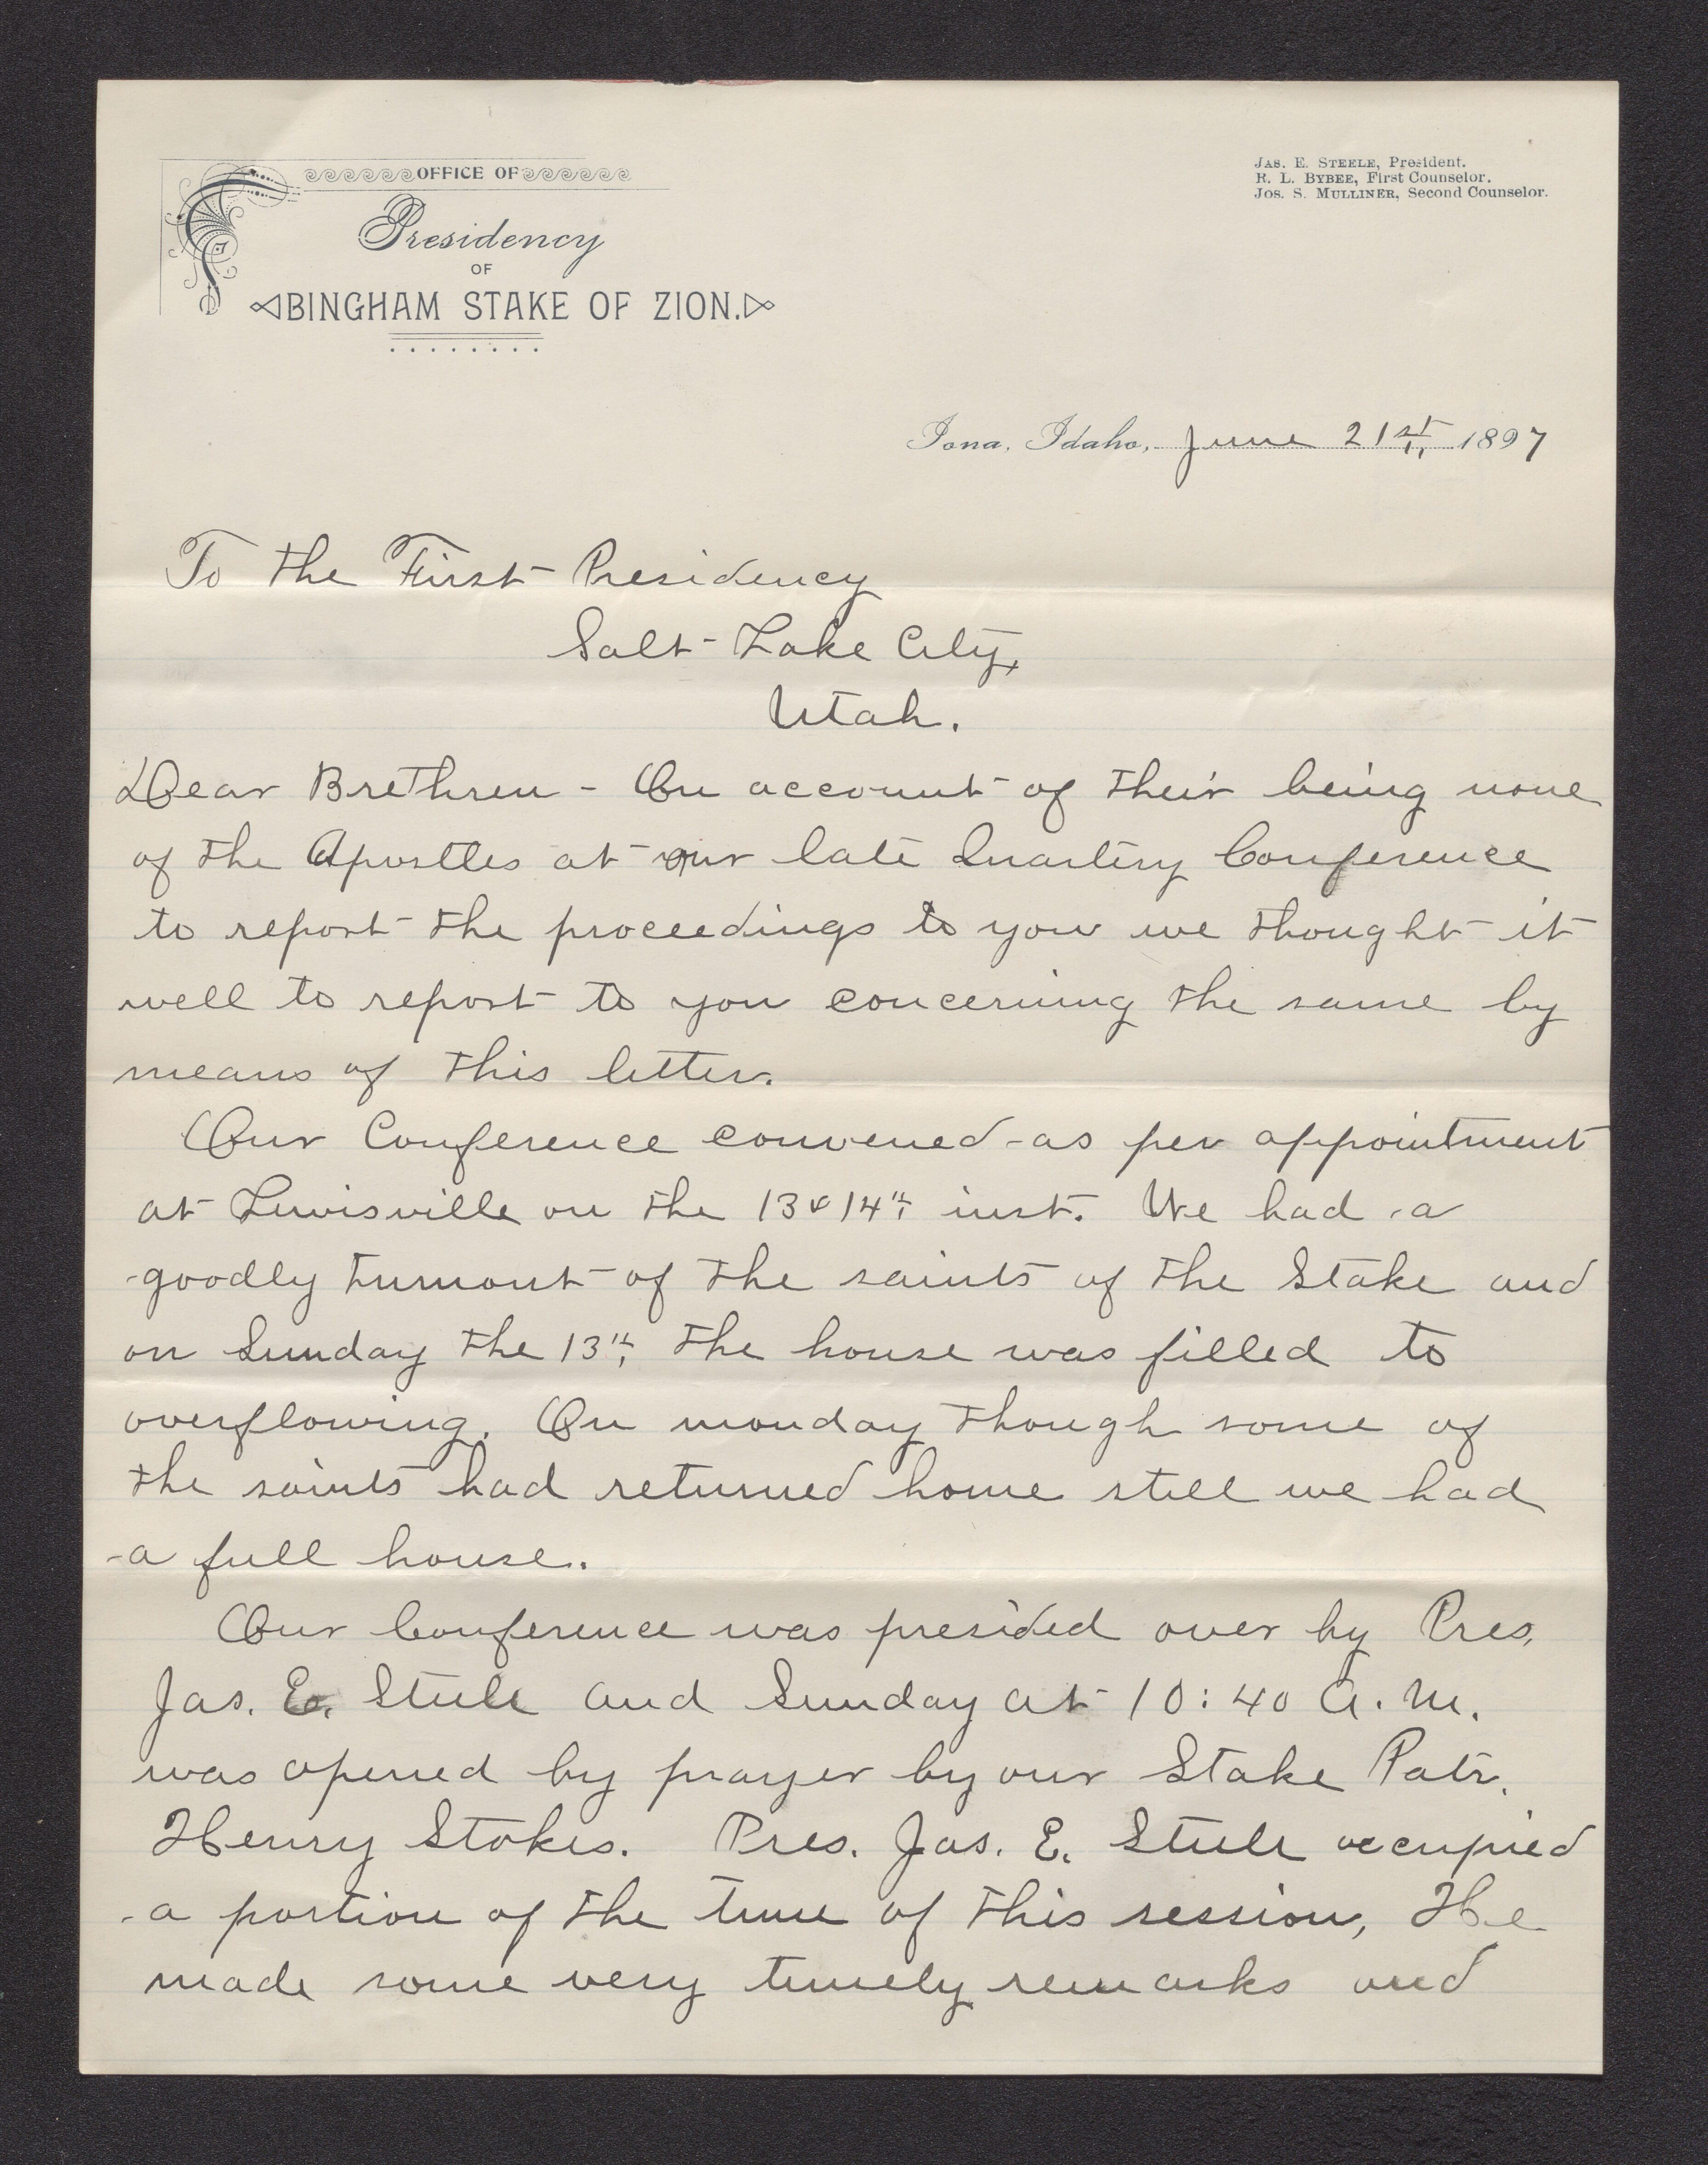 OFFICE OF
Presidency
OF
BINGHAM STAKE OF ZION.
JAS. E. STEELE, President.
R. L. BYBEE, First Counselor.
JOS. S. MULLINER, Second Counselor.
Iona, Idaho, June 21st, 1897
To the First Presidency
Salt Lake City,
Utah.
Dear Brethren - On account of their being none
of the Apostles at our late Quartery Conference
to report the proceedings to you we thought it
well to report to you concerning the same by
means of this letter.
Our Conference convened as per appointment
at Lewisville on the 13 & 14th inst. We had a
goodly turnout of the saints of the Stake and
on Sunday the 13th, the house was filled to
overflowing. On monday though some of
the saints had returned home still we had
a full house.
Our Conference was presided over by Pres.
Jas. E. Steele and Sunday at 10:40 A.M.
was opened by prayer by our Stake Patr.
Henry Stokes. Pres. Jas. E. Steele occupied
a portion of the time of this session, He
made some very timely remarks and